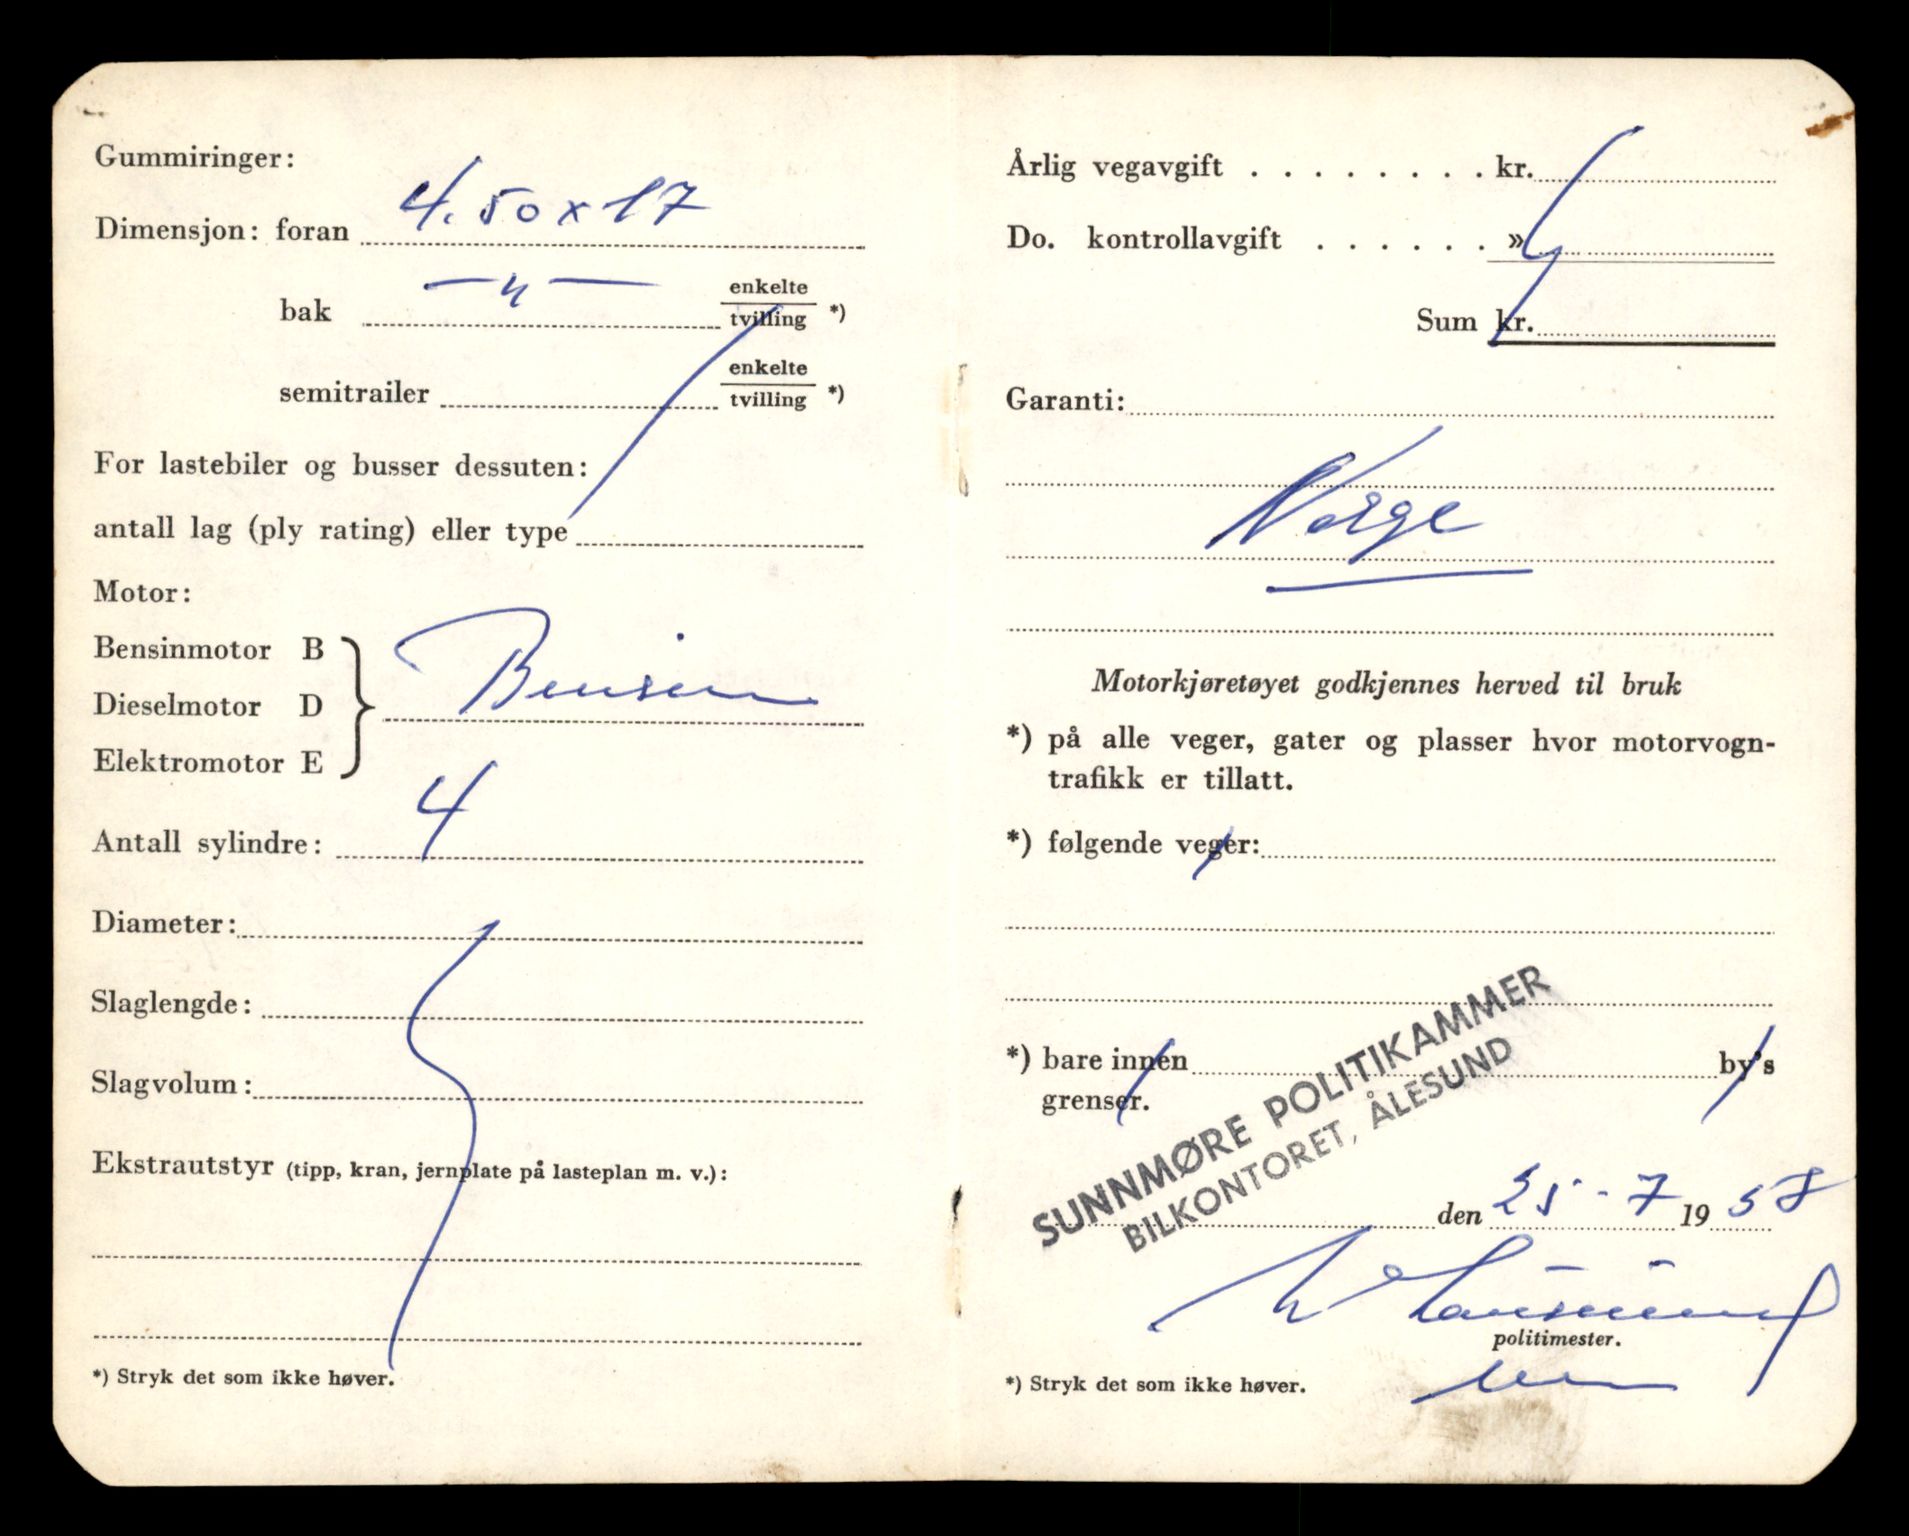 Gummiringer:
Dimensjon: foran 4.50 x 17
bak — " — enkelte
tvilling *)
semitrailer enkelte
tvilling *)
For lastebiler og busser dessuten:
antall lag (ply rating) eller type
Motor:
Bensinmotor B
Dieselmotor D Bensin
Elektromotor E
Antall sylindre: 4
Diameter:
Slaglengde:
Slagvolum:
Ekstrautstyr (tipp, kran, jernplate på lasteplan m. v.):
*) Stryk det som ikke høver.
Årlig vegavgift . . . . . . . . kr.
Do. kontrollavgift . . . . . . »
Sum kr.
Garanti:
Norge
Motorkjøretøyet godkjennes herved til bruk
*) på alle veger, gater og plasser hvor motorvogn-
trafikk er tillatt.
*) følgende veger:
*) bare innen by's
grenser.
SUNNMØRE POLITIKAMMER
BILKONTORET, ÅLESUND
den 25-7 1958
politimester.
*) Stryk det som ikke høver.